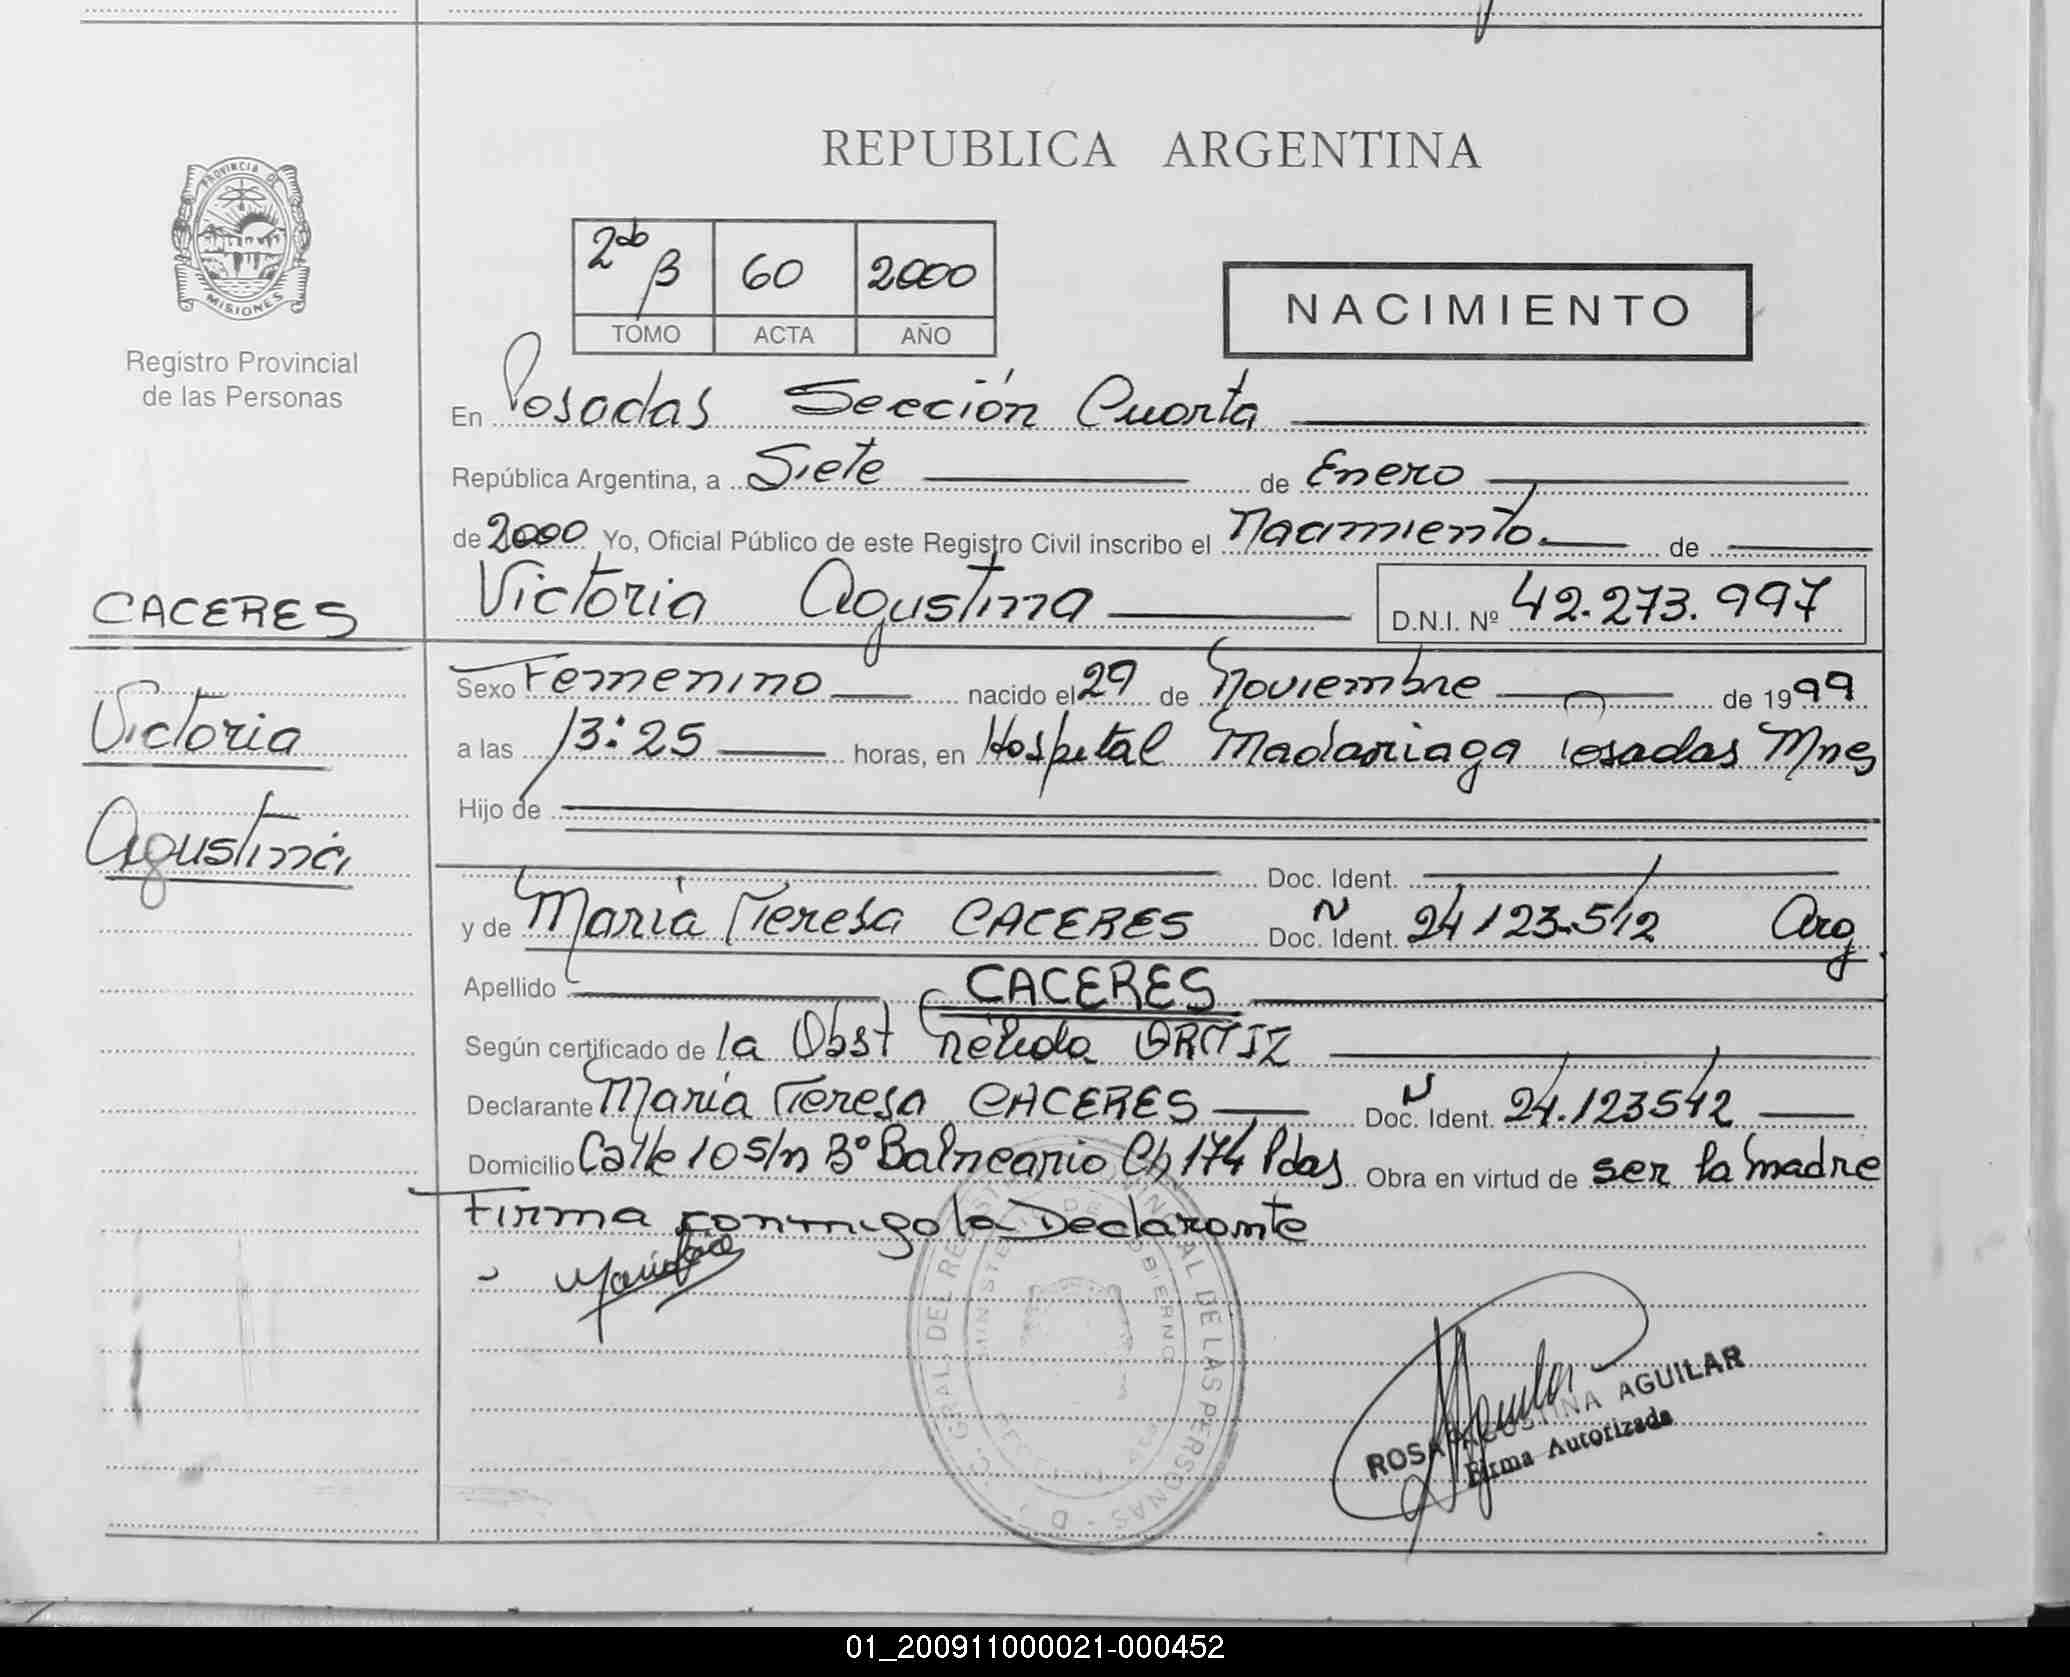 REPUBLICA ARGENTINA
PROVINCIA DE
MISIONES
Registro Provincial
de las Personas
2do B 60 2000
TOMO ACTA AÑO
NACIMIENTO
En Posadas Sección Cuarta
República Argentina, a Siete de Enero
de 2000 Yo, Oficial Público de este Registro Civil inscribo el Nacimiento. de
Victoria Agustina D.N.I. Nº 42.273.997
CACERES
Victoria
Agustina
Sexo Femenino nacido el 29 de Noviembre de 1999
a las 13:25 horas, en Hospital Madariaga Posadas Mnes
Hijo de
Doc. Ident.
y de María Teresa CACERES Doc. Ident. N 24.123.512 Arg
Apellido CACERES
Según certificado de la Obst Nélida ORTIZ
Declarante María Teresa CACERES Doc. Ident. N 24.123512
Domicilio Calle 10 s/n Bº Balneario Ch 174 Pdas Obra en virtud de ser la madre
Firma conmigo la Declarante
ROSA AGUSTINA AGUILAR
Firma Autorizada
GRAL. DEL REGISTRO PROVINCIAL DE LAS PERSONAS
MINISTERIO DE GOBIERNO
01_200911000021-000452